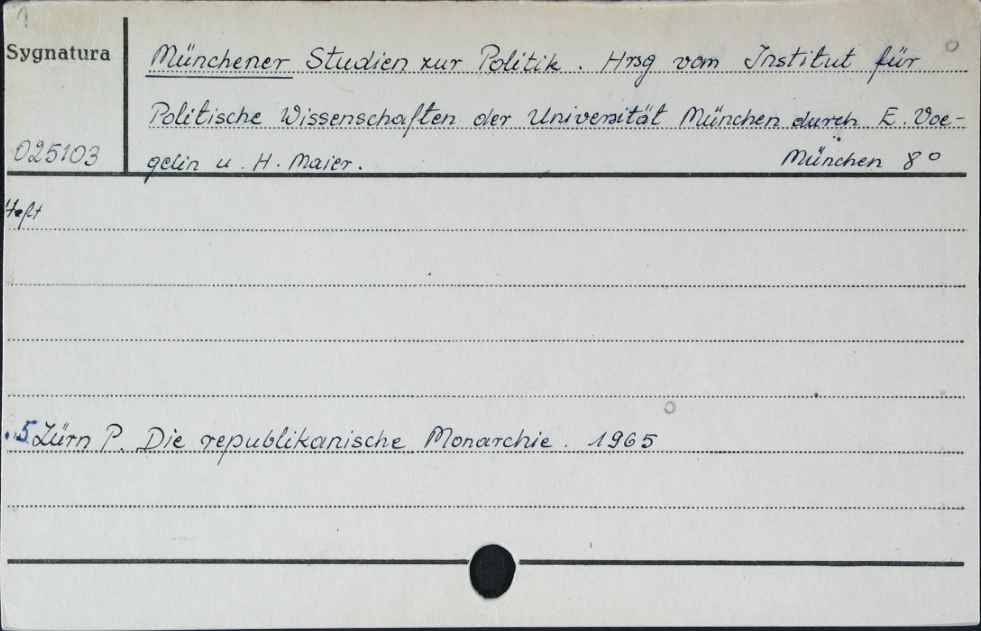 1
Sygnatura
Münchener Studien zur Politik. Hrsg vom Institut für
Politische Wissenschaften der Universität München durch E. Voe-
025103
gelin u. H. Maier. München 8°
Heft
5 Zürn P. Die republikanische Monarchie. 1965